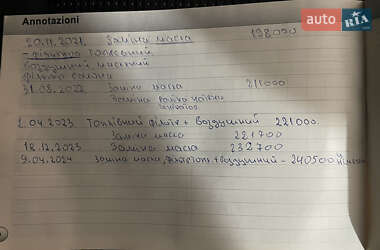 Annotazioni
AUTO RIA .com
20.11.2021. Заміна масла 198000
- фільтра топлівний
воздушний масляний
фільтра салона
31.08.2022 Заміна масла 211000
Заміна
2.04.2023 Топлівний фільтр + воздушний 221000.
Заміна масла 221700
18.12.2023 Заміна масла 232700
9.04.2024 Заміна масла, + воздушний - 240500